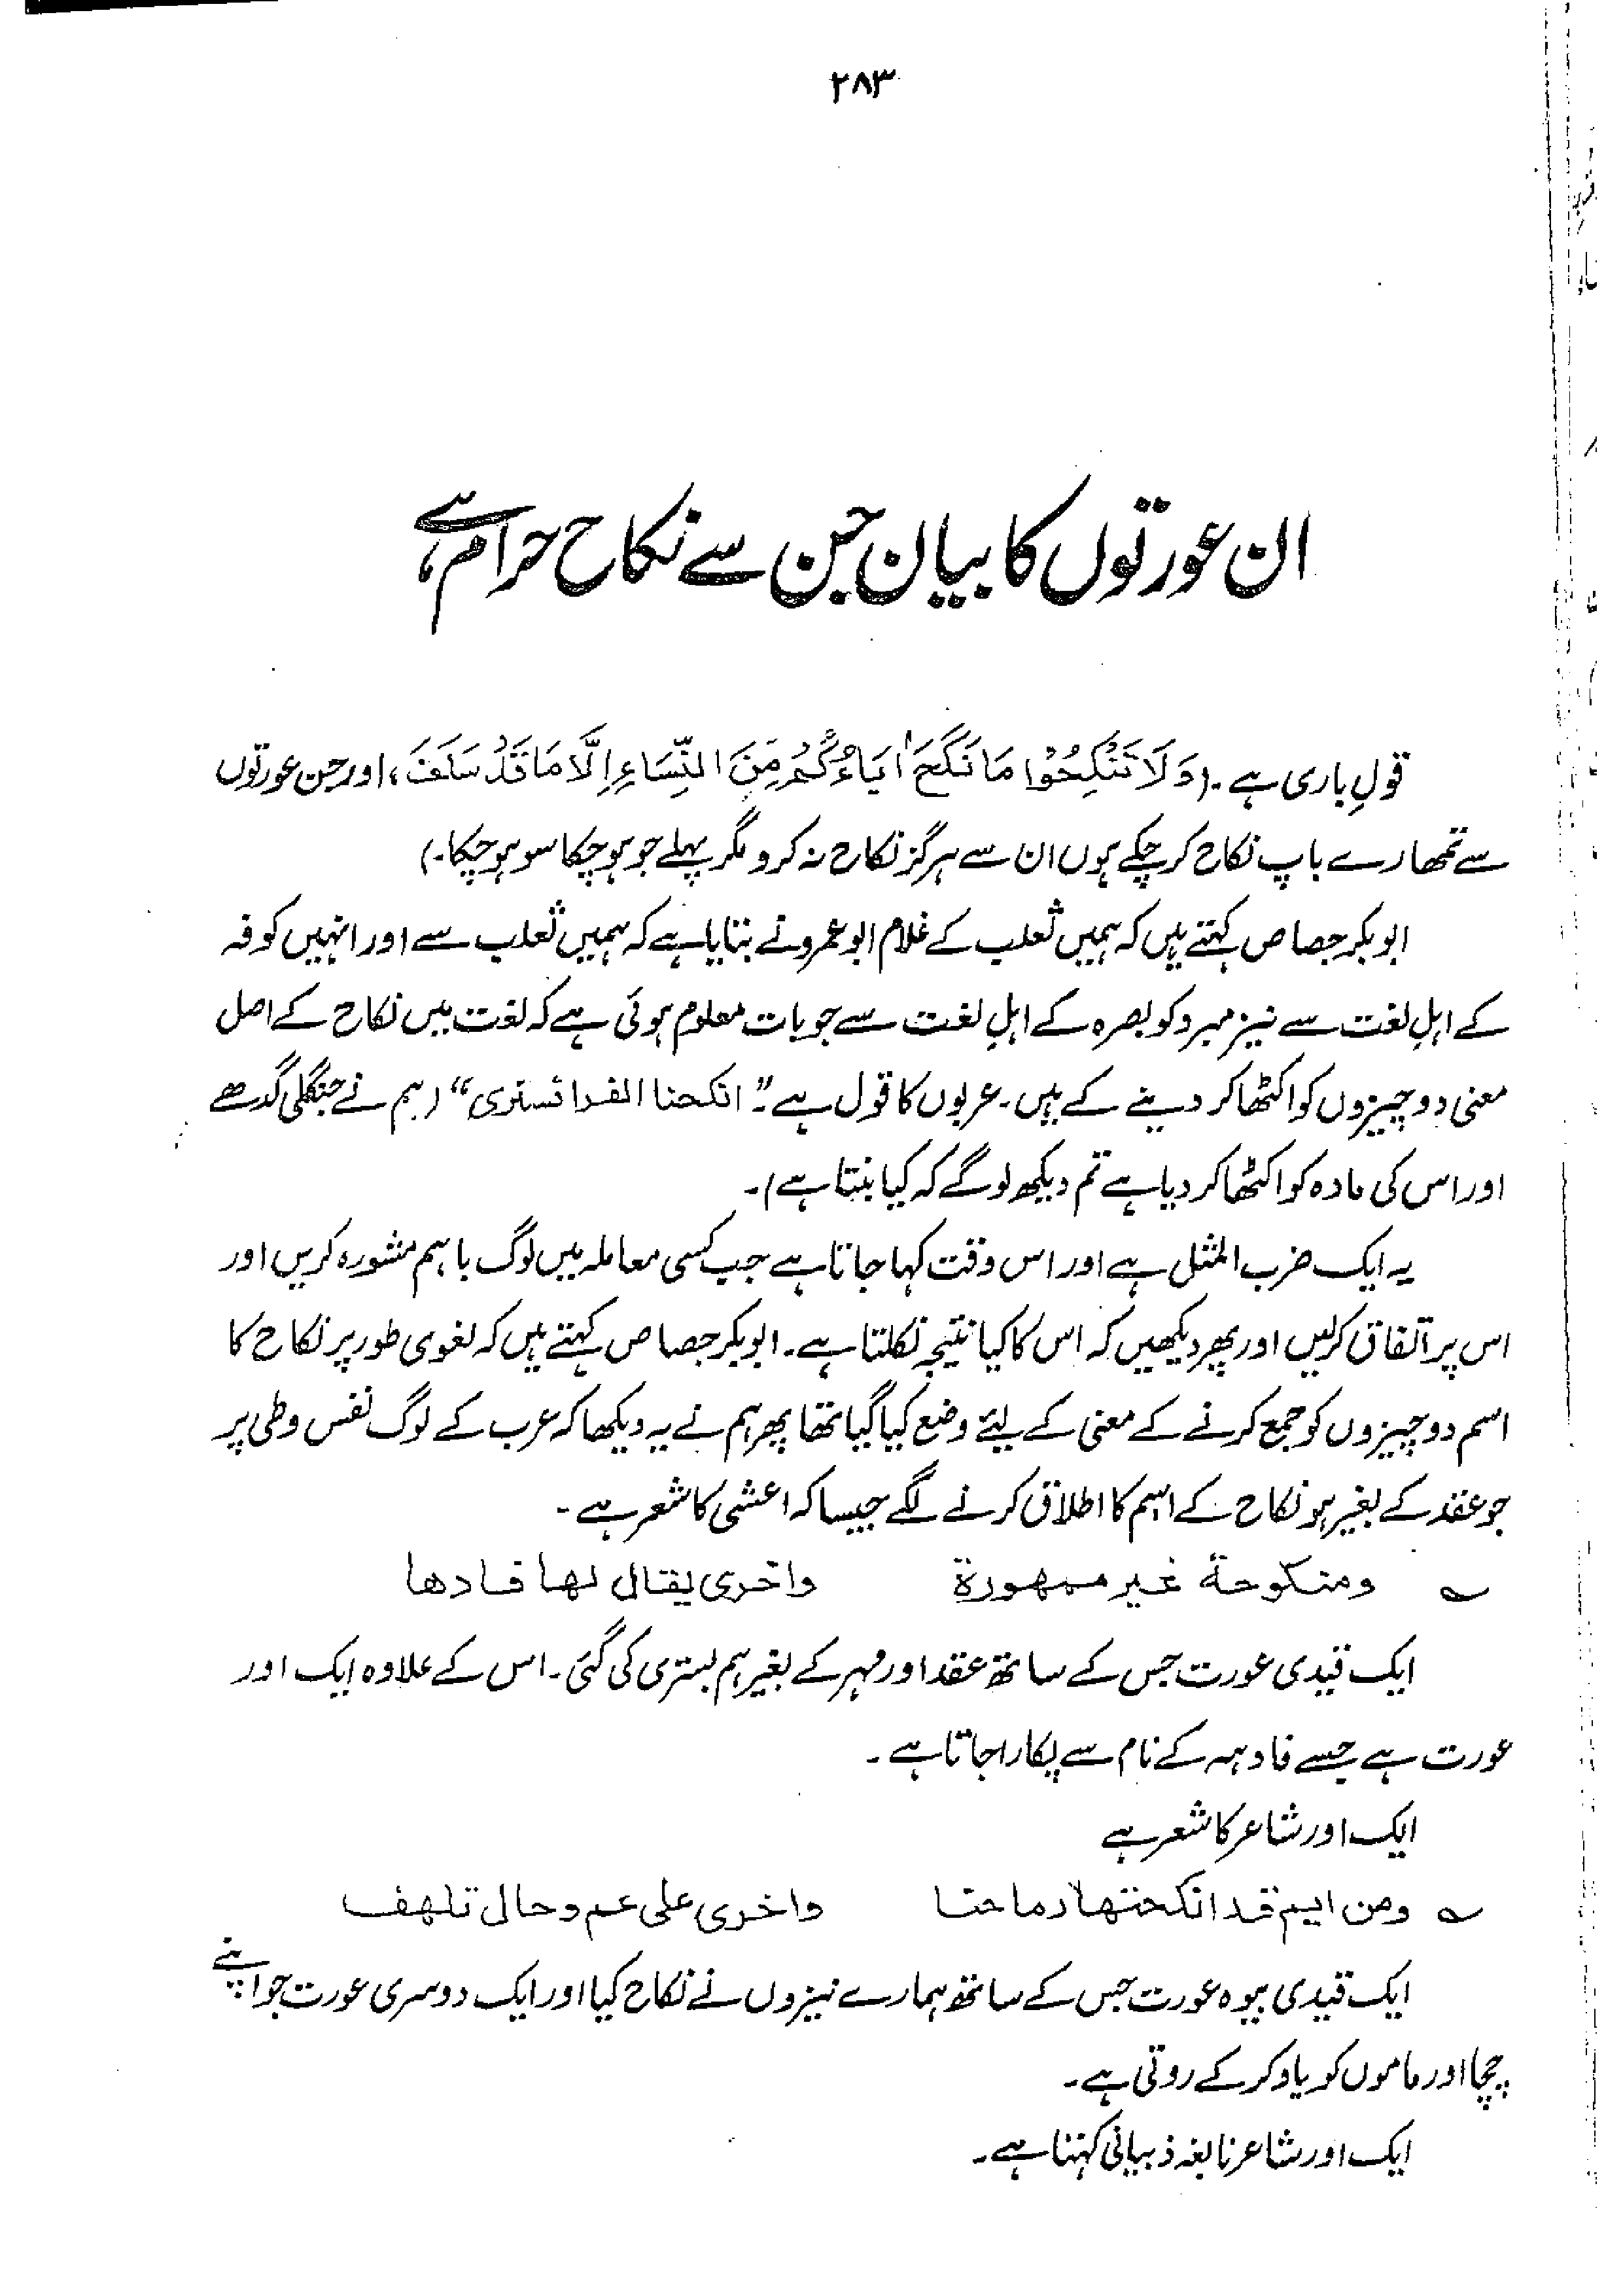 ۲۸۳
ان عورتوں کا بیان جن سے نکاح حرام ہے
قولِ باری ہے۔ (وَلَا تَنْكِحُوْا مَا نَكَحَ اٰبَاءُكُمْ مِّنَ النِّسَاءِ اِلَّا مَا قَدْ سَلَفَ، اور جن عورتوں
سے تمھارے باپ نکاح کر چکے ہوں ان سے ہرگز نکاح نہ کرو مگر پہلے جو ہو چکا سو ہو چکا۔)
ابوبکر جصاص کہتے ہیں کہ ہمیں ثعلب کے غلام ابوعمرو نے بتایا ہے کہ ہمیں ثعلب سے اور انہیں کوفہ
کے اہلِ لغت سے نیز مبرد کو بصرہ کے اہلِ لغت سے جو بات معلوم ہوئی ہے کہ لغت میں نکاح کے اصل
معنی دو چیزوں کو اکٹھا کر دینے کے ہیں۔ عربوں کا قول ہے۔ "انکحنا الفرا فسنری" (ہم نے جنگلی گدھے
اور اس کی مادہ کو اکٹھا کر دیا ہے تم دیکھ لو گے کہ کیا بنتا ہے)۔
یہ ایک ضرب المثل ہے اور اس وقت کہا جاتا ہے جب کسی معاملہ میں لوگ باہم مشورہ کریں اور
اس پر اتفاق کرلیں اور پھر دیکھیں کہ اس کا کیا نتیجہ نکلتا ہے۔ ابوبکر جصاص کہتے ہیں کہ لغوی طور پر نکاح کا
اسم دو چیزوں کو جمع کرنے کے معنی کے لئے وضع کیا گیا تھا پھر ہم نے یہ دیکھا کہ عرب کے لوگ نفس وطی پر
جو عقد کے بغیر ہو نکاح کے اسم کا اطلاق کرنے لگے جیسا کہ اعشی کا شعر ہے۔
؎ ومنكوحة غير ممهورة واخرى يقال لها فادها
ایک قیدی عورت جس کے ساتھ عقد اور مہر کے بغیر ہم بستری کی گئی۔ اس کے علاوہ ایک اور
عورت ہے جسے فادہہ کے نام سے پکارا جاتا ہے۔
ایک اور شاعر کا شعر ہے
؎ ومن ايم قد انكحتها رماحنا واخرى على عم وخال تلهف
ایک قیدی بیوہ عورت جس کے ساتھ ہمارے نیزوں نے نکاح کیا اور ایک دوسری عورت جو اپنے
چچا اور ماموں کو یاد کر کے روتی ہے۔
ایک اور شاعر نابغہ ذبیانی کہتا ہے۔